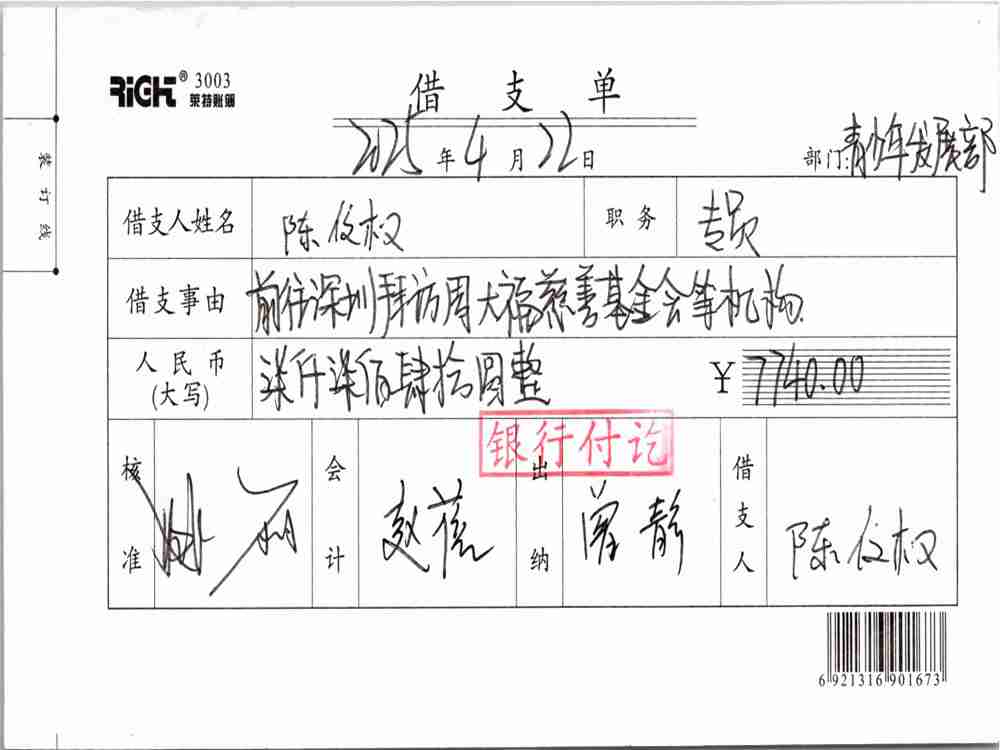 RiGHT® 3003
莱特账簿
借支单
2025年4月22日
部门:青少年发展部
装订线
借支人姓名 陈俊权 职务 专员
借支事由 前往深圳拜访周大福慈善基金会等机构.
人民币(大写) 柒仟柒佰肆拾圆整 ¥7740.00
银行付讫
核准 会计 赵蓓 出纳 曾静 借支人 陈俊权
6 921316 901673